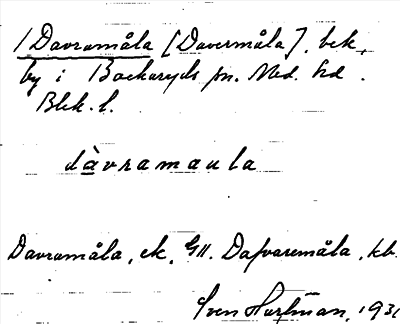 1 Davramåla [Davermåla], bek.
by i Backaryds sn. Med. hd.
Blek. l.
dàvramaula
Davramåla, ek, Gll. Dafvaremåla, kb.
Sven Hartman, 1931